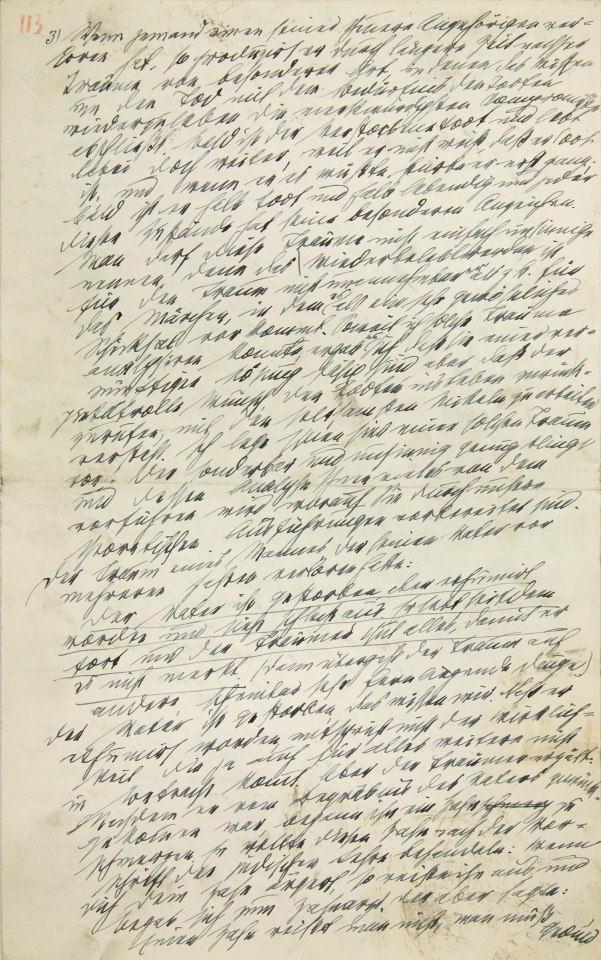 113
3) Wenn jemand einen seiner teuren Angehörigen ver-
loren hat, so produzirt er durch längere Zeit nachher
Träume von besonderer Art, in denen das Wissen
um den Tod mit dem Bedürfnis den Todten
wiederzubeleben die merkwürdigsten Compromisse
abschließt. Bald ist der Verstorbene todt und lebt
dabei doch weiter, weil er nicht weiß, daß er todt
ist, und wenn er es wüßte, stürbe er erst ganz;
bald ist er halb todt und halb lebendig und jeder
dieser Zustände hat seine besonderen Anzeichen.
Man darf diese Träume nicht einfach unsinnige
nennen, denn das Wiederbelebtwerden ist
für den Traum nicht unannehmbarer als z. B. für
das Märchen, in dem es als ein sehr gewöhnliches
Schicksal vorkommt. Soweit ich solche Träume
analysiren konnte, ergab es sich daß sie einer ver-
nünftigen Lösung fähig sind aber daß der
pietätvolle Wunsch den Todten ins Leben zurück-
zurufen, mit den seltsamsten Mitteln zu arbeiten
versteht. Ich lege Ihnen hier einen solchen Traum
vor. Der sonderbar und unsinnig genug klingt
und dessen Analyse Ihnen vieles von dem
vorführen wird, worauf Sie durch unsere
theoretischen Ausführungen vorbereitet sind.
Der Traum eines Mannes, der seinen Vater vor
mehreren Jahren verloren hatte:
Der Vater ist gestorben aber exhumirt
worden und sieht schlecht aus. Er lebt seitdem
fort und der Träumer thut alles, damit er
es nicht merkt. (Dann übergeht der Traum auf
andere scheinbar sehr fernliegende Dinge)
Der Vater ist gestorben, das wissen wir. Daß er
exhumirt worden, entspricht nicht der Wirklich-
keit, die ja auch für alles weitere nicht
in Betracht kommt. Aber der Träumer erzählt:
Nachdem er vom Begräbnis des Vaters zurück-
gekommen war, begann ihn ein Zahn zu
schmerzen. Er wollte diesen Zahn nach der Vor-
schrift der jüdischen Lehre behandeln: Wenn
dich dein Zahn ärgert, so reiße ihn aus und
begab sich zum Zahnarzt. Der aber sagte:
Einen Zahn reißt man nicht, man muß
Geduld